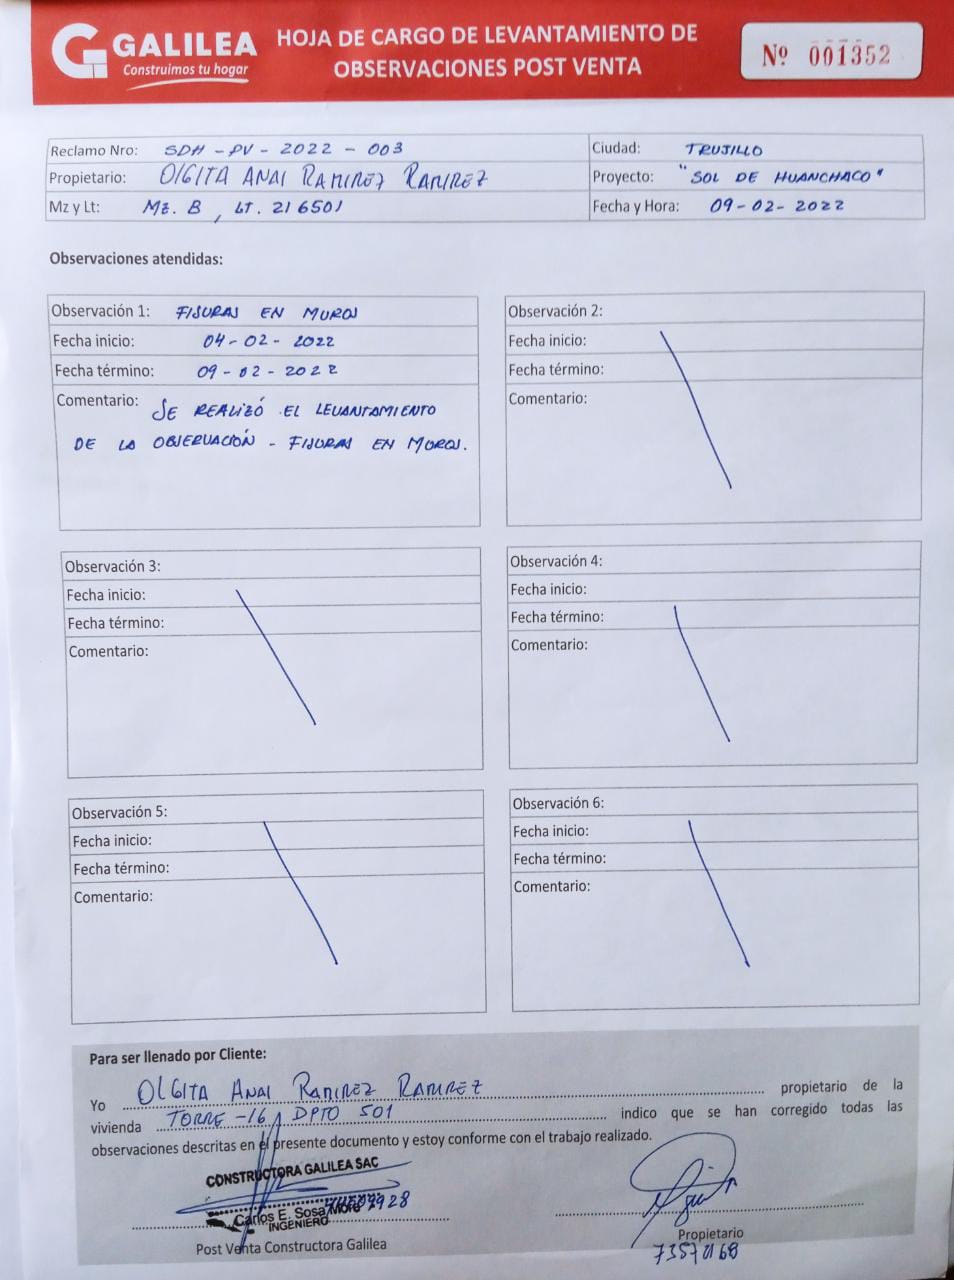 GALILEA
Construimos tu hogar
HOJA DE CARGO DE LEVANTAMIENTO DE
OBSERVACIONES POST VENTA
Nº 001352
Reclamo Nro: SDH - PV - 2022 - 003
Ciudad: TRUJILLO
Propietario: OlGITA ANAI RAMIREZ RAMIREZ
Proyecto: "SOL DE HUANCHACO"
Mz y Lt: Mz. B , LT. 216501
Fecha y Hora: 09-02-2022
Observaciones atendidas:
Observación 1: FISURAS EN MUROS
Fecha inicio: 04-02-2022
Fecha término: 09-02-2022
Comentario: SE REALIZÓ EL LEVANTAMIENTO
DE LA OBSERVACIÓN - FISURAS EN MUROS.
Observación 2:
Fecha inicio:
Fecha término:
Comentario:
Observación 3:
Fecha inicio:
Fecha término:
Comentario:
Observación 4:
Fecha inicio:
Fecha término:
Comentario:
Observación 5:
Fecha inicio:
Fecha término:
Comentario:
Observación 6:
Fecha inicio:
Fecha término:
Comentario:
Para ser llenado por Cliente:
Yo OLGITA ANAI RAMIREZ RAMIREZ propietario de la
vivienda TORRE-16 / DPTO 501 indico que se han corregido todas las
observaciones descritas en el presente documento y estoy conforme con el trabajo realizado.
CONSTRUCTORA GALILEA SAC
Carlos E. Sosa
INGENIERO
Post Venta Constructora Galilea
Propietario